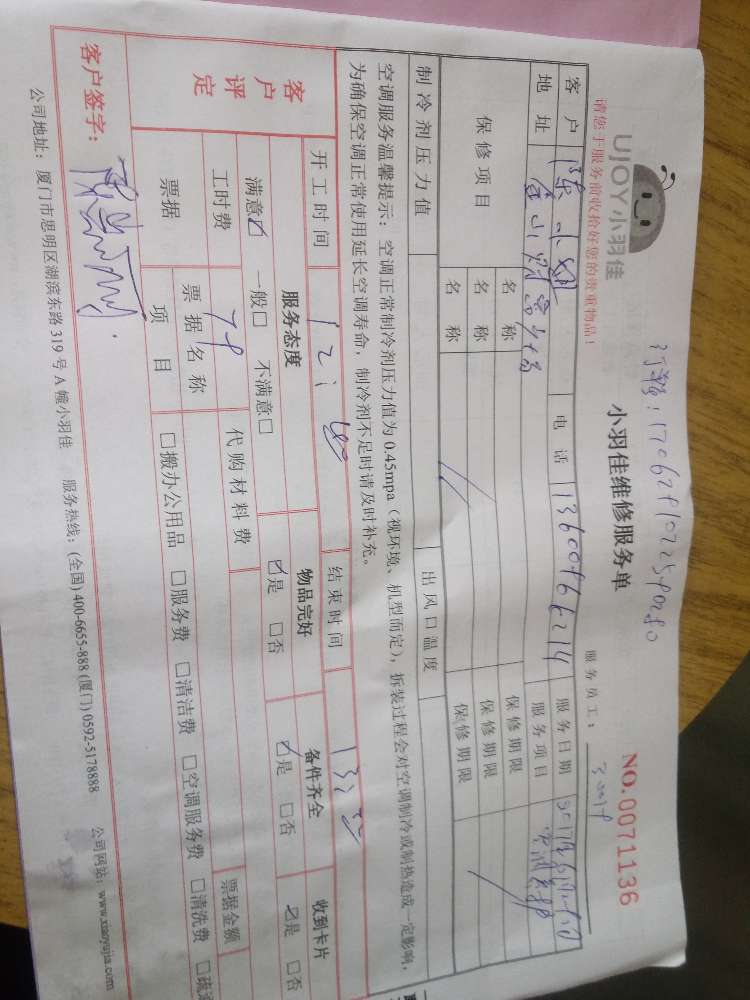 UJOY小羽佳
请您于服务前收拾好您的贵重物品!
小羽佳维修服务单
服务员工:
NO.0071136
客户 陈小姐 电话 服务日期
地址 金山财富广场 服务项目
保修项目 名称 保修期限
名称 保修期限
名称 保修期限
制冷剂压力值 出风口温度
空调服务温馨提示:空调正常制冷剂压力值为0.45mpa(视环境、机型而定),拆装过程会对空调制冷或制热造成一定影响,
为确保空调正常使用延长空调寿命,制冷剂不足时请及时补充。
开工时间 12:40 结束时间
客户评定 服务态度 物品完好 备件齐全 收到卡片
满意☑ 一般□ 不满意□ ☑是 □否 ☑是 □否 ☑是 □否
工时费 代购材料费 票据金额
票据 票据名称
项目 □搬办公用品 □服务费 □清洁费 □空调服务费 □清洗费
客户签字:
公司地址:厦门市思明区湖滨东路319号A幢小羽佳 服务热线:(全国)400-6655-888(厦门)0592-5178888 公司网站:www.xiaoyujia.com